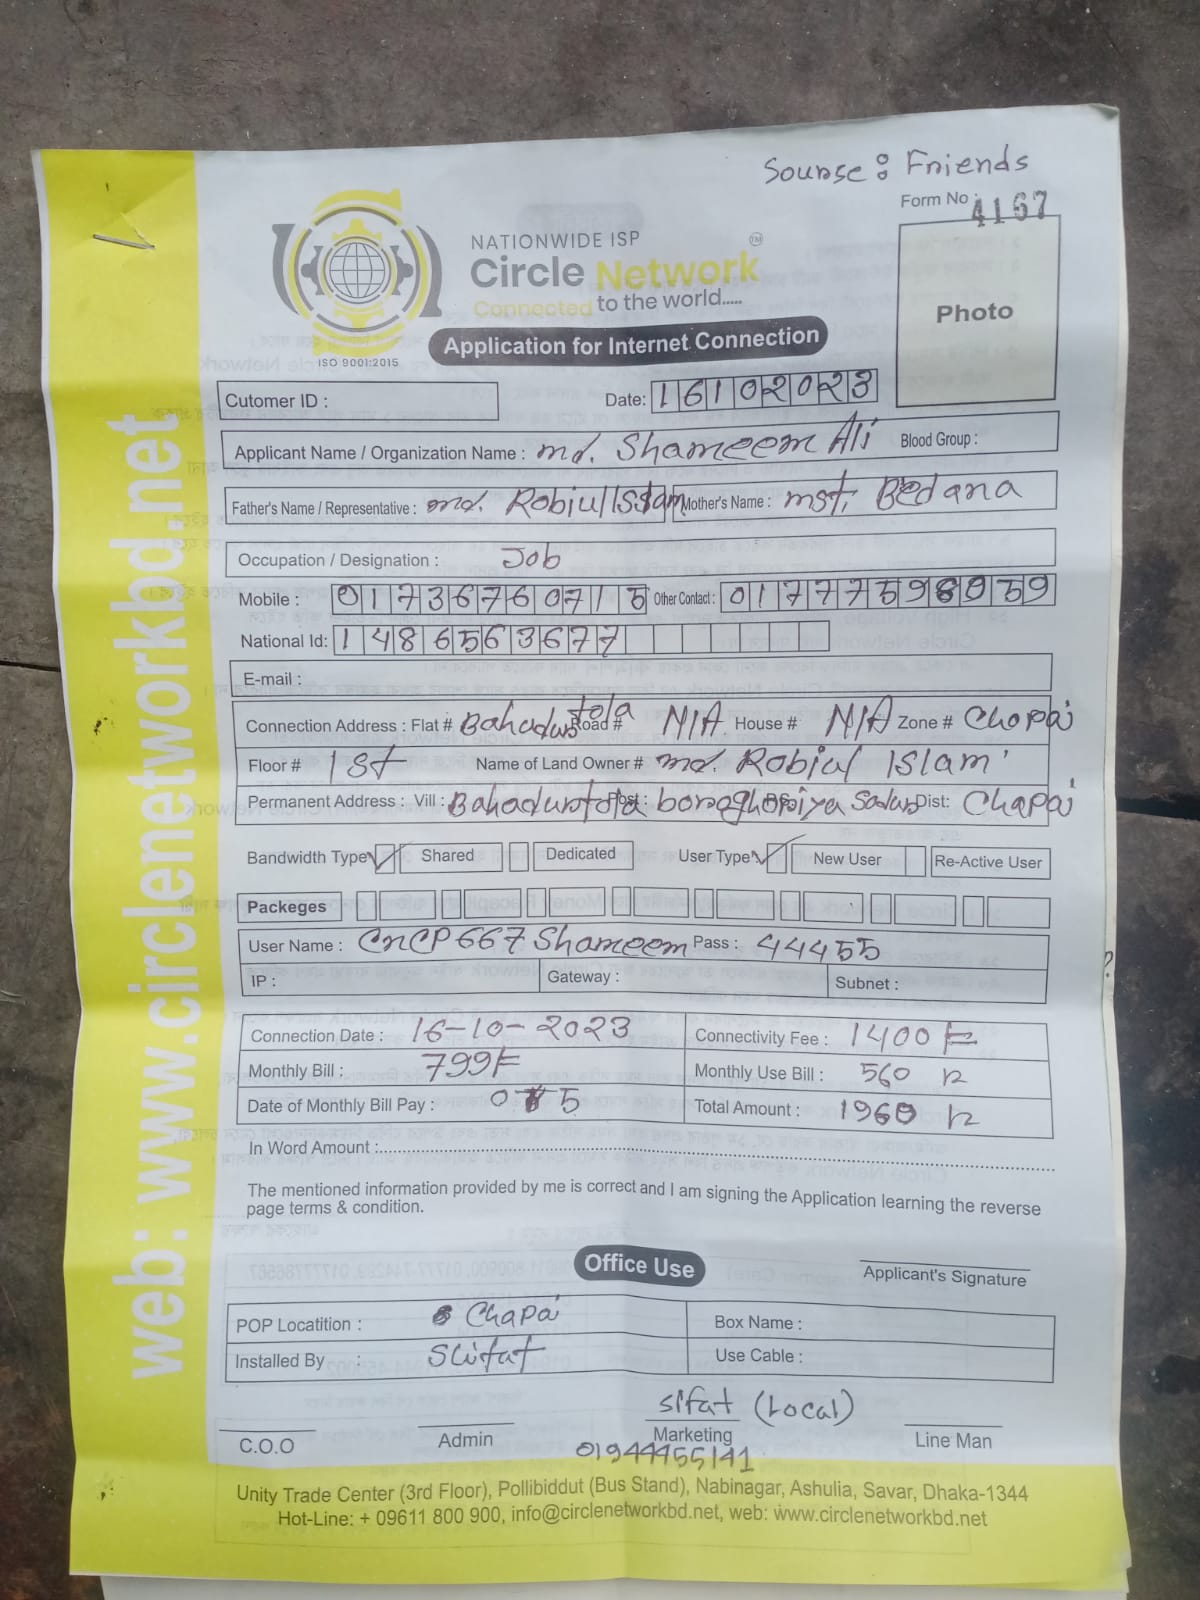 Sourse: Friends
Form No : 4167
NATIONWIDE ISP
Circle Network TM
Connected to the world.....
ISO 9001:2015
Application for Internet Connection
Photo
Cutomer ID :
Date: 16102023
Applicant Name / Organization Name : md. Shameem Ali Blood Group :
Father's Name / Representative : md. Robiul Islam Mother's Name : mst. Bedana
Occupation / Designation : Job
Mobile : 01736760715 Other Contact : 01777598959
National Id: 1486563677
E-mail :
Connection Address : Flat # Bahadurtola Road # N/A House # N/A Zone # Chapai
Floor # 1st Name of Land Owner # md. Robiul Islam
Permanent Address : Vill : Bahadurtola Post : boroghoriya PS: Sadur Dist: Chapai
Bandwidth Type Shared Dedicated User Type New User Re-Active User
Packeges
User Name : CNCP667Shameem Pass : 44455
IP : Gateway : Subnet :
Connection Date : 16-10-2023 Connectivity Fee : 1400
Monthly Bill : 799 Monthly Use Bill : 560
Date of Monthly Bill Pay : 05 Total Amount : 1960
In Word Amount :
The mentioned information provided by me is correct and I am signing the Application learning the reverse
page terms & condition.
Office Use
Applicant's Signature
POP Locatition : Chapai Box Name :
Installed By : Sifat Use Cable :
sifat (Local)
C.O.O Admin Marketing Line Man
01944455141
Unity Trade Center (3rd Floor), Pollibiddut (Bus Stand), Nabinagar, Ashulia, Savar, Dhaka-1344
Hot-Line: + 09611 800 900, info@circlenetworkbd.net, web: www.circlenetworkbd.net
web: www.circlenetworkbd.net